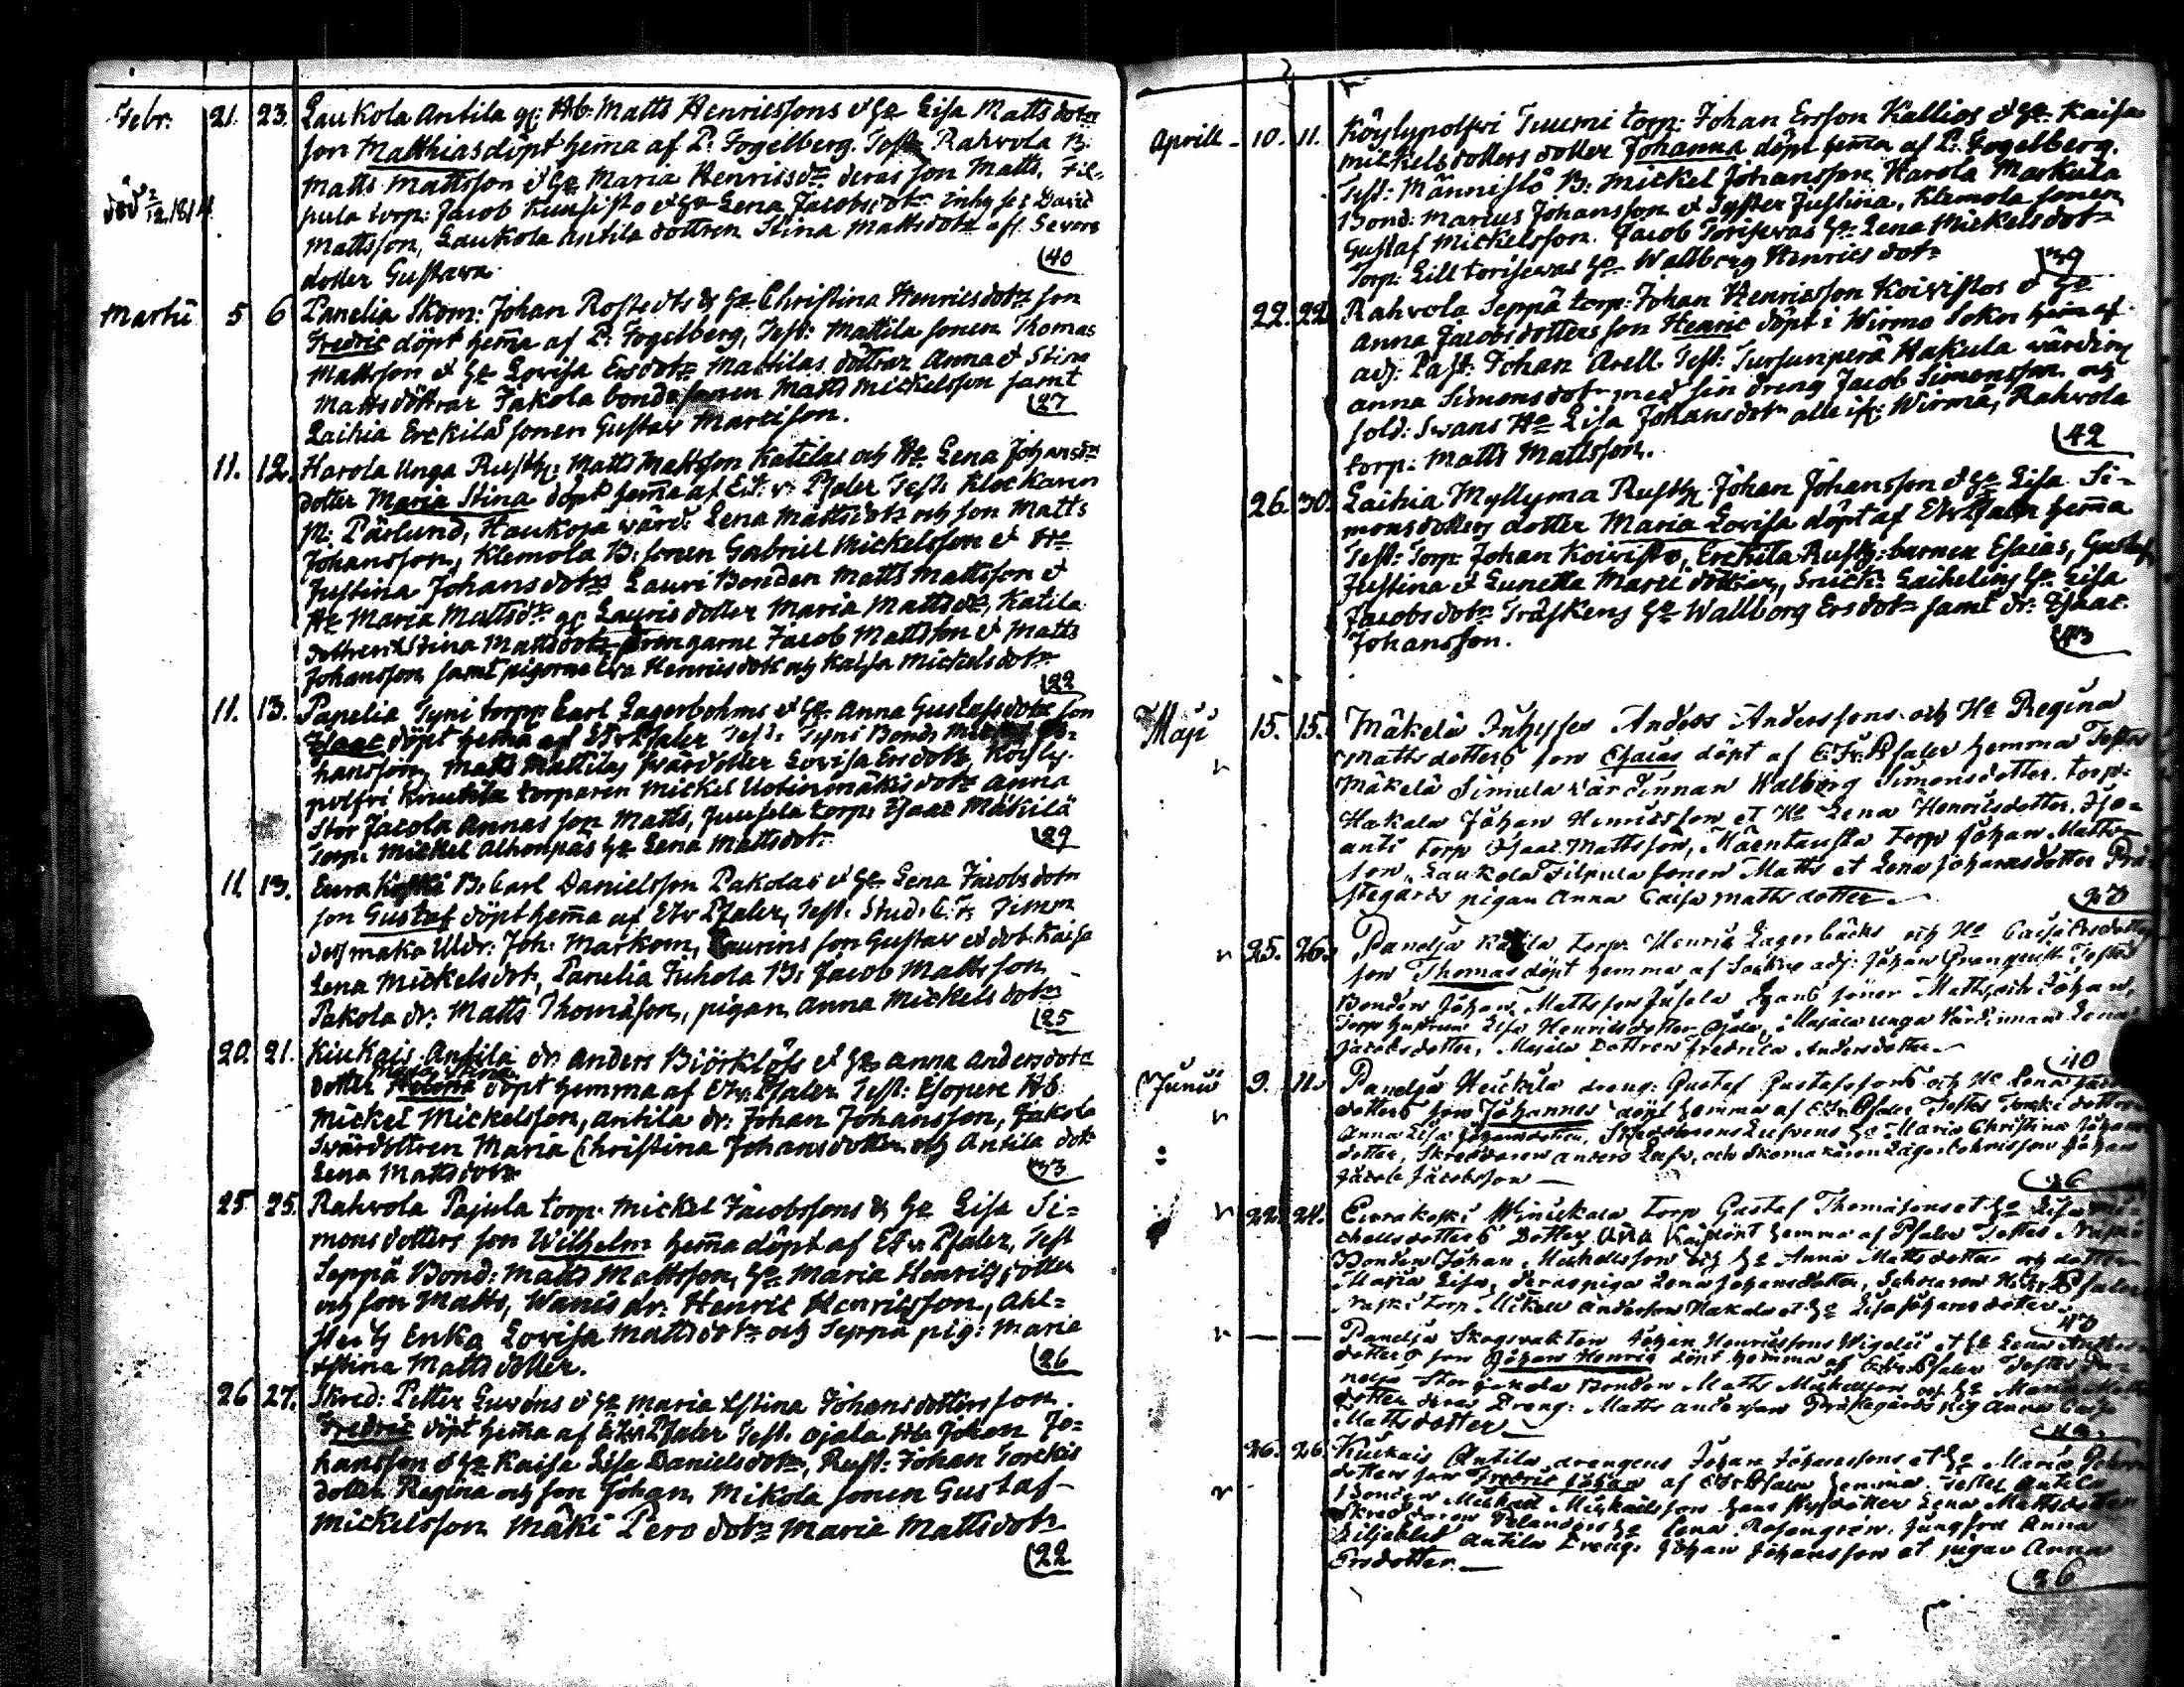 Febr. 21. 23. Laukola Antila gl: Hb: Matts Henricssons & Hu Lisa Mattsdotrs
son Matthias döpt hema af P. Fogelberg. Test: Rahvola B.
Matts Mattsson & Hu Maria Henricsdr deras son Matts, Fil-
död 2/12 1814. pula torp: Jacob Kuusisto & Hu Lena Jacobsdotr inhyses David
Mattsson, Laukola Antila dottren Stina Mattsdotr afl. Severs
dotter Gustava.
(40
Martii 5 6 Panelia Skom: Johan Rostedts & Hu Christina Henricsdotrs son
Fredric döpt hema af P. Fogelberg, Test: Mattila sonen Thomas
Mattsson & Hu Lovisa Ersdotr Mattilas döttrar Anna & Stina
Mattsdöttrar Jakola bondesonen Matts Mickelsson samt
Laihia Erckilä sonen Gustav Martisson.
(27
11. 12. Harola Unga Rusth: Matts Mattsson Katilas och Hu Lena Johansdrs
dotter Maria Stina döpt hema af Er: v: Psaler Test: Klockaren
M: Pärlund, Haukoja värd: Lena Mattsdotr och son Matts
Johansson, Klemola B: sonen Gabriel Mickelsson & Hu
Justina Johansdotr Lauri Bonden Matts Mattsson &
Hu Maria Mattsdr gl: Lauris dotter Maria Mattsdr, Katila
dottren Xstina Mattsdotr drengarne Jacob Mattsson & Matts
Johansson samt pigorne Eva Henricsdotr och Kaisa Mickelsdotr
(22
11. 13. Panelia Tyni torp: Carl Lagerbohms & Hu Anna Gustafsdotrs son
Isaac döpt hema af Er v Psaler Test: Tyni Bond:
hansson, Matts Mattilas svärdotter Lovisa Ersdotr, Köyly-
polfri Knutila torparen Mickel Uotinmäkis dotr Anna
Stor Jacola Annas son Matts, Juusela torp: Isaac Mäkilä
Torp: Mickel Alhonpäs Hu Lena Mattsdotr
(29
11. 13. Eura Koski B: Carl Danielsson Pakolas & Hu Lena Jacobsdotrs
son Gustaf döpt hema af Er v Psaler, Test: Stud: C. F. Timm
dess maka Uldr: Joh: Markom, Laurins son Gustav & dotr Kaisa
Lena Mickelsdotr, Panelia Juhola B: Jacob Mattsson
Pakola dr: Matts Thomasson, pigan Anna Mickelsdotr
(25
20. 21. Kiukais Antila dr Anders Biörklöfs & Hu Anna Andersdotrs
dotter Helena döpt hemma af Er v Psaler Test: Esopere Hb
Mickel Mickelsson, Antila dr: Johan Johansson, Jakola
Svärdottren Maria Christina Johansdotter och Antila dotr
Lena Mattsdotr
(33
25 25. Rahvola Pajula torp: Mickel Jacobssons & Hu Lisa Si-
monsdotters son Wilhelm hema döpt af Er v Psaler, Test
Seppä Bond: Matts Mattsson, Hu Maria Henricsdotter
och son Matts, Wanis dr: Henric Henricsson, Ahl-
stens Enka Lovisa Mattsdotr och Seppä pig: Maria
Xstina Matts dotter.
(26
26 27. Skred: Petter Luvéns & Hu Maria Xstina Johansdotters son
Fredric döpt hema af Er v Psaler Test. Ojala Hb Johan Jo-
hansson & Hu Kaisa Lisa Danielsdotr, Rust: Johan Torckis
dotter Regina och son Johan, Mikola sonen Gustaf
Mickelsson Mäki Pero dotr Maria Mattsdotr
(22
Aprill 10. 11. Köylypolfvi Tuumi torp: Johan Ersson Kallios & Hu Kaisa
Mickelsdotters dotter Johanna döpt hema af P. Fogelberg.
Test: Männistö B: Mickel Johansson, Harola Markula
Bond: Marcus Johansson & Syster Justina, Klemola sonen
Gustaf Mickelsson. Jacob Torisevas Hu Lena Mickelsdotr
Torp: Lill torisevas Hu Wallborg Henricsdotr
(39
22. 22. Rahvola Seppä torp: Johan Henricsson Koivistos & Hu
Anna Jacobsdotters son Henric döpt i Wirmo Sokn hema af
adj: Past: Johan Arell. Test: Sursunperä Hakula värdin
Anna Simonsdotr med sin dreng Jacob Simonsson och
sold: Svans Hu Lisa Johansdotr alle if: Wirmä, Rahvola
torp: Matts Mattsson.
(42
26. 30. Laihia Myllyma Rusth: Johan Johansson & Hu Lisa Si-
monsdotters dotter Maria Lovisa döpt af Er v Psaler hema
Test: Torp: Johan Koivisto, Erckila Rusth: barnen Esaias, Gustaf,
Justina & Lunetta Marti döttrar, Snick: Laihelins Hu Lisa
Jacobsdotr Träskens Hu Wallborg Ersdotr samt dr: Isaac
Johansson.
(43
Maji 15. 15. Mäkelä Inhyses Anders Anderssons och Hu Regina
Mattsdotters son Esaias döpt af E.F.v. Psaler hemma Testes
Mäkelä Simula värdinnan Walborg Simonsdotter. torp.
Hakala Johan Henricsson et Hu Lena Henricsdotter.
anti torp Isaac Mattsson, Mäentausta torp Johan Matts-
son, Laukola Filpula sonen Matts et Lena Johansdotter Prä-
stegårds pigan Anna Caisa Matts dotter.
25. 26. Panelja torp: Henric Lagerbäcks och Hu Caisa Ersdotters
son Thomas döpt hemma af Sockne adj: Johan Granquist Testes
Bonden Johan Mattsson Jusela hans söner Matts och Johan,
Torp hustrun Lisa Henricsdotter Ojala, Majala unga Värdinnan Lena
Jacobsdotter, Majala Dottren Fredrica Andersdotter.
(40
Junii 9. 11. Panelja Heickilä dreng: Gustaf Gustafssons och Hu Lena
dotters son Johannes döpt hemma af E.F.v. Psaler Testes
Anna Lisa Johansdotter, Skreddarens Lufvens Hu Maria Christina Johans
dotter, Skreddaren Anders Lufv, och Skomakaren Johan
Jacob Jacobsson
(26
22. 24. Eurakoski Winickala torp Gustaf Thomassons et Hu Lisa Mi-
chelsdotters Dotter döpt hemma af Psaler Testes
Bonden Johan Michelsson och Hu Anna Mattsdotter och dotter
Maria Lisa, deras piga Lena Johansdotter,
torp Mickel Andersson Hakala et Hu Lisa Johansdotter.
(40
— — Panelja Skogsvakten Johan Henricssons Wigelii et Hu Lena
dotters son Johan Henric döpt hemma af E.F.v. Psaler Testes Pa-
nelja Storjakola Bonden Matts Mickelsson och Hu Maria Matts
dotter deras Dreng: Matts Andersson Prästegårds pig Anna Caisa
Mattsdotter
26. 26. Kiukais Antila drengens Johan Johanssons et Hu Maria
dotters son Fredric Johan af E.F.v. Psaler hemma. Testes Antila
Bonden Mickael Mickaelsson hans styfdotter Lena Mattsdotter
Skreddaren Hu Lena Rosengrén. Jungfru Anna
Antila Dreng: Johan Johansson et pigan Anna
Ersdotter.
(26